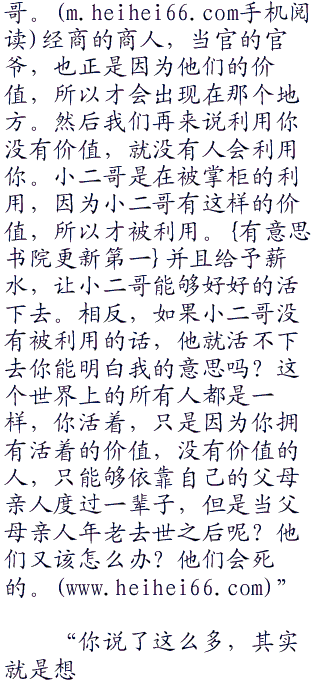 哥。(m.heihei66.com手机阅
读)经商的商人，当官的官
爷，也正是因为他们的价
值，所以才会出现在那个地
方。然后我们再来说利用你
没有价值，就没有人会利用
你。小二哥是在被掌柜的利
用，因为小二哥有这样的价
值，所以才被利用。{有意思
书院更新第一}并且给予薪
水，让小二哥能够好好的活
下去。相反，如果小二哥没
有被利用的话，他就活不下
去你能明白我的意思吗？这
个世界上的所有人都是一
样，你活着，只是因为你拥
有活着的价值，没有价值的
人，只能够依靠自己的父母
亲人度过一辈子，但是当父
母亲人年老去世之后呢？他
们又该怎么办？他们会死
的。(www.heihei66.com)”
“你说了这么多，其实
就是想